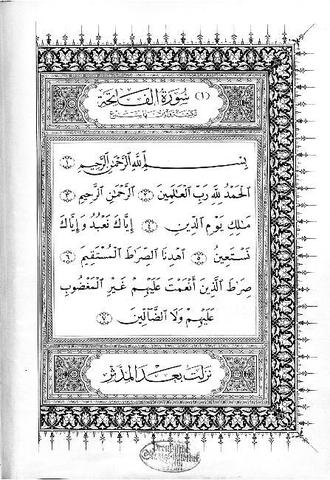 (١) سُورَةُ الْفَاتِحَةِ
بِسْمِ اللَّهِ الرَّحْمَٰنِ الرَّحِيمِ ١
الْحَمْدُ لِلَّهِ رَبِّ الْعَالَمِينَ ٢ الرَّحْمَٰنِ الرَّحِيمِ ٣
مَالِكِ يَوْمِ الدِّينِ ٤ إِيَّاكَ نَعْبُدُ وَإِيَّاكَ
نَسْتَعِينُ ٥ اهْدِنَا الصِّرَاطَ الْمُسْتَقِيمَ ٦
صِرَاطَ الَّذِينَ أَنْعَمْتَ عَلَيْهِمْ غَيْرِ الْمَغْضُوبِ
عَلَيْهِمْ وَلَا الضَّالِّينَ ٧
نزلت بعد المدثر